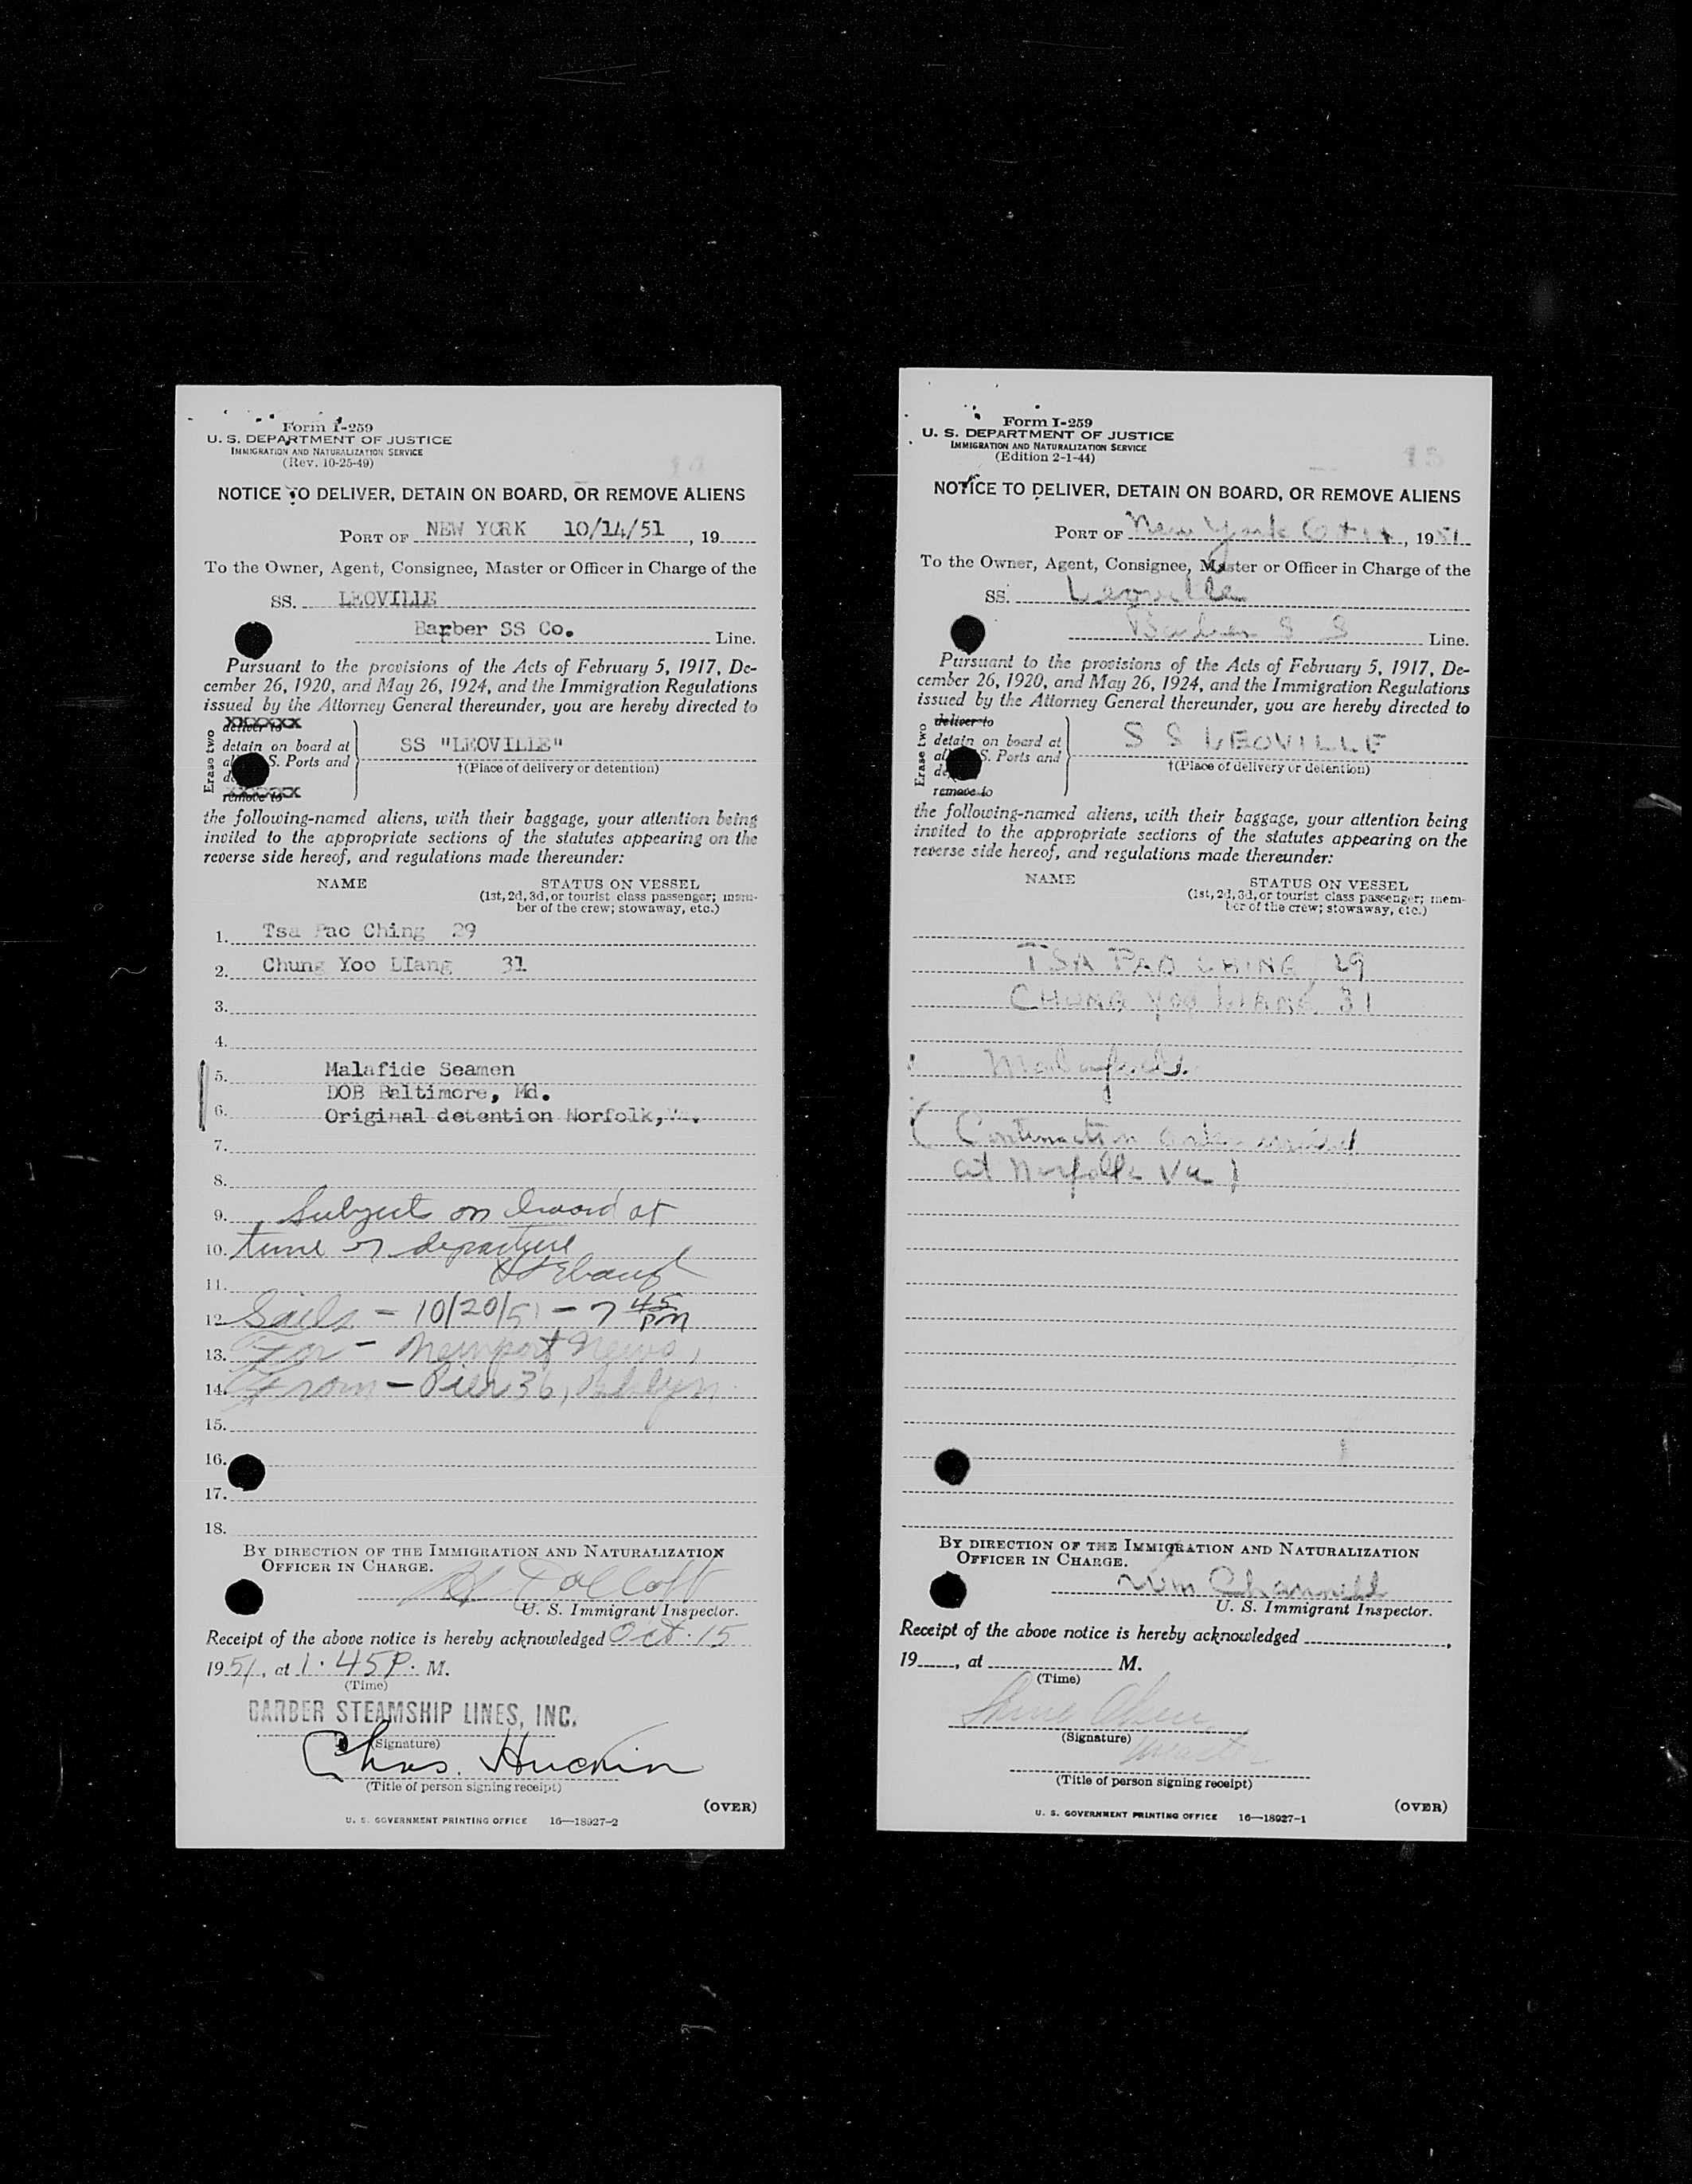 Form I-259
U. S. DEPARTMENT OF JUSTICE
IMMIGRATION AND NATURALIZATION SERVICE
(Rev. 10-25-49)
NOTICE TO DELIVER, DETAIN ON BOARD, OR REMOVE ALIENS
PORT OF NEW YORK 10/14/51, 19
To the Owner, Agent, Consignee, Master or Officer in Charge of the
SS. LEOVILLE
Barber SS Co. Line.
Pursuant to the provisions of the Acts of February 5, 1917, De-
cember 26, 1920, and May 26, 1924, and the Immigration Regulations
issued by the Attorney General thereunder, you are hereby directed to
Erase two
deliver to
detain on board at
S. Ports and
remove to
SS "LEOVILLE"
†(Place of delivery or detention)
the following-named aliens, with their baggage, your attention being
invited to the appropriate sections of the statutes appearing on the
reverse side hereof, and regulations made thereunder:
NAME STATUS ON VESSEL
(1st, 2d, 3d, or tourist class passenger; mem-
ber of the crew; stowaway, etc.)
1. Tsa Pao Ching 29
2. Chung Yoo LIang 31
3.
4.
5. Malafide Seamen
DOB Baltimore, Md.
6. Original detention Norfolk, Va.
7.
8.
9. Subjects on board at
10. time of departure
11.
12. Sails - 10/20/51 - 7 45 pm
13. For - Newport News,
14. From - Pier 36, Bklyn
15.
16.
17.
18.
BY DIRECTION OF THE IMMIGRATION AND NATURALIZATION
OFFICER IN CHARGE.
U. S. Immigrant Inspector.
Receipt of the above notice is hereby acknowledged Oct. 15
1951, at 1.45 P. M.
(Time)
BARBER STEAMSHIP LINES, INC.
(Signature)
Chas.
(Title of person signing receipt)
(OVER)
U. S. GOVERNMENT PRINTING OFFICE 16—18927-2
Form I-259
U. S. DEPARTMENT OF JUSTICE
IMMIGRATION AND NATURALIZATION SERVICE
(Edition 2-1-44)
15
NOTICE TO DELIVER, DETAIN ON BOARD, OR REMOVE ALIENS
PORT OF New York Oct 14, 1951
To the Owner, Agent, Consignee, Master or Officer in Charge of the
SS. Leoville
Barber S S Line.
Pursuant to the provisions of the Acts of February 5, 1917, De-
cember 26, 1920, and May 26, 1924, and the Immigration Regulations
issued by the Attorney General thereunder, you are hereby directed to
Erase two
deliver to
detain on board at
S. Ports and
remove to
S S LEOVILLE
†(Place of delivery or detention)
the following-named aliens, with their baggage, your attention being
invited to the appropriate sections of the statutes appearing on the
reverse side hereof, and regulations made thereunder:
NAME STATUS ON VESSEL
(1st, 2d, 3d, or tourist class passenger; mem-
ber of the crew; stowaway, etc.)
TSA PAO CHING 29
CHUNG YOO LIANG 31
Malafide.
(Continuation order issued
at Norfolk Va)
BY DIRECTION OF THE IMMIGRATION AND NATURALIZATION
OFFICER IN CHARGE.
Wm
U. S. Immigrant Inspector.
Receipt of the above notice is hereby acknowledged ,
19 , at M.
(Time)
(Signature)
Master
(Title of person signing receipt)
(OVER)
U. S. GOVERNMENT PRINTING OFFICE 16—18927-1